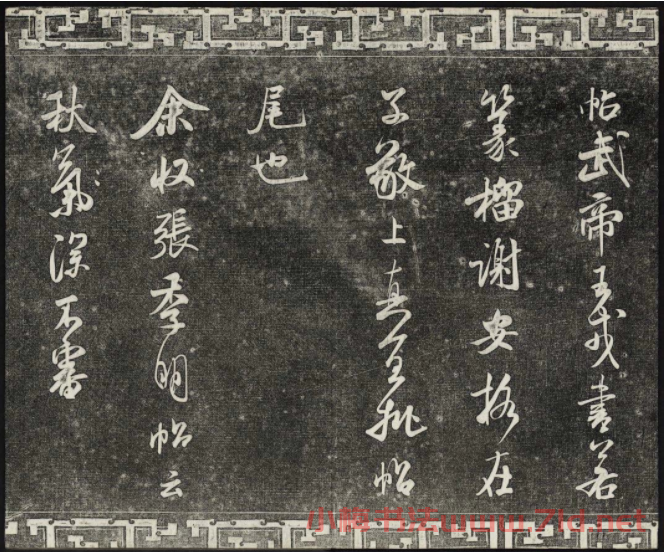 帖武帝王戎書若
篆籀謝安格在
子敬上真宜批帖
尾也
余收張季明帖云
秋氣深不審
小梅书法www.7ld.net